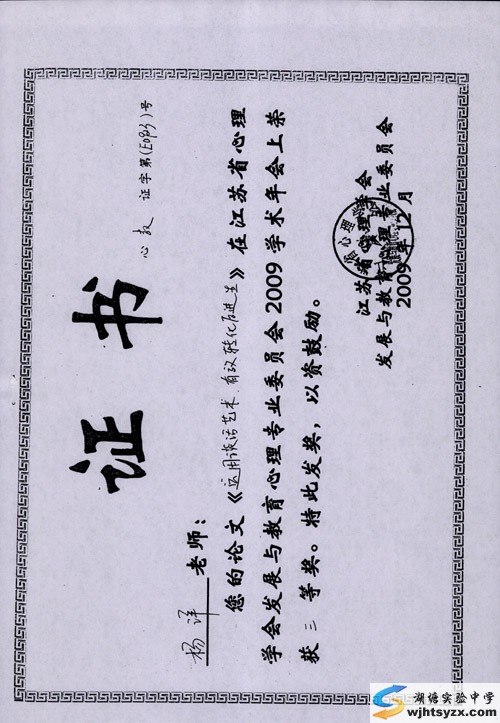 证书
心教 证字第(E083)号
杨洋 老师：
您的论文《运用谈话艺术 有效转化后进生》在江苏省心理
学会发展与教育心理专业委员会2009学术年会上荣
获 三 等奖。特此发奖，以资鼓励。
江苏省心理学会
发展与教育心理专业委员会
2009年12月
湖塘实验中学
wjhtsyzx.com